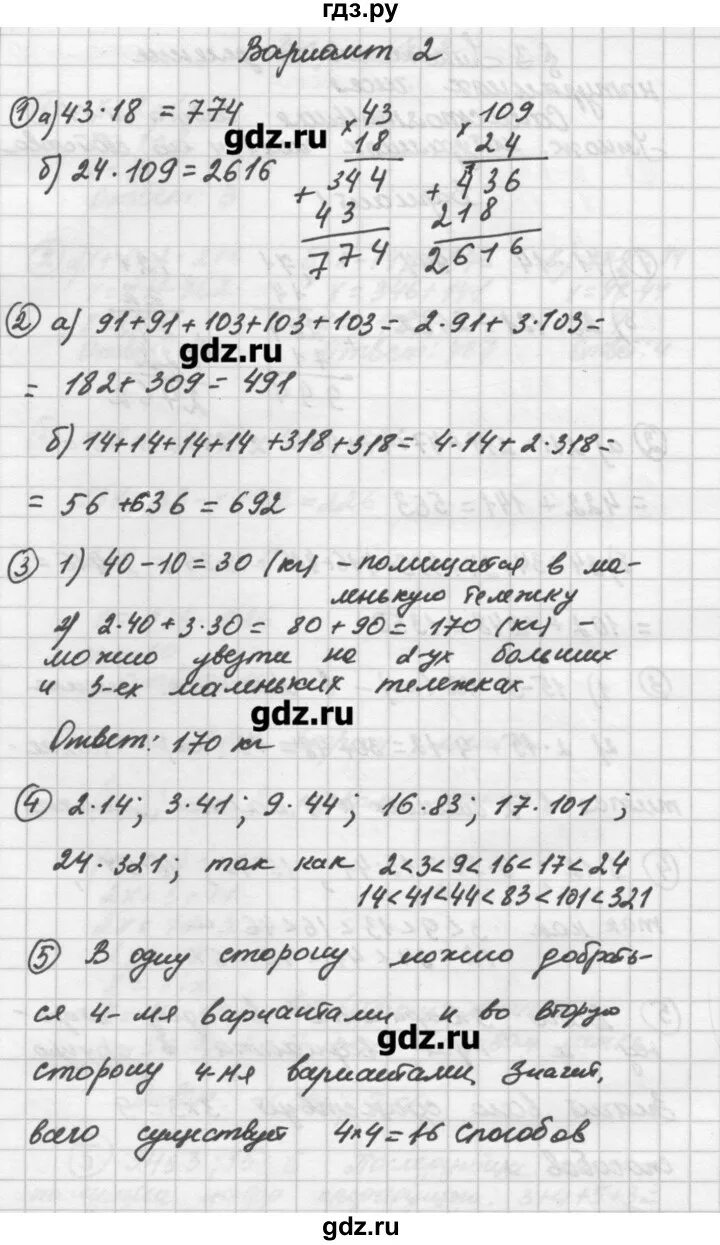 гдз.ру
Вариант 2
① а) 43·18 = 774
б) 24·109 = 2616
× 43
18
+ 344
43
774
× 109
24
+ 436
218
2616
gdz.ru
② а) 91+91+103+103+103= 2·91+3·103=
gdz.ru
= 182+309=491
б) 14+14+14+14+318+318= 4·14+2·318=
= 56+636=692
③ 1) 40-10=30 (кг) - помещается в ма-
ленькую тележку
2) 2·40+3·30= 80+90= 170 (кг) -
можно увезти на 2-ух больших
и 3-ех маленьких тележках
gdz.ru
Ответ: 170 кг
④ 2·14; 3·41; 9·44; 16·83; 17·101;
24·321; так как 2<3<9<16<17<24
14<41<44<83<101<321
⑤ В одну сторону можно добрать-
ся 4-мя вариантами и во вторую
gdz.ru
сторону 4-мя вариантами, Значит,
всего существует 4×4=16 способов
gdz.ru